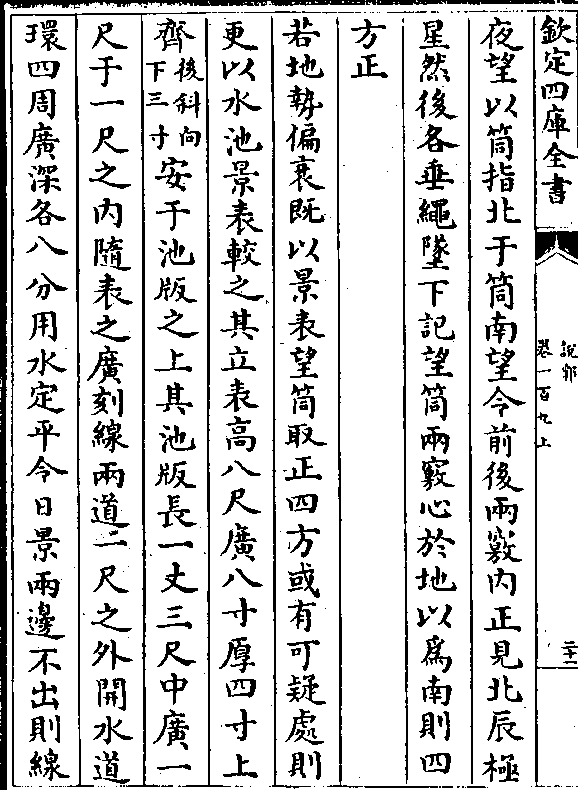 欽定四庫全書
說郛
卷一百九上
二十二
夜望以筒指北于筒南望令前後兩竅内正見北辰極
星然後各垂繩墜下記望筒兩竅心於地以爲南則四
方正
若地勢偏衺既以景表望筒取正四方或有可疑處則
更以水池景表較之其立表高八尺廣八寸厚四寸上
齊後斜向下三寸安于池版之上其池版長一丈三尺中廣一
尺于一尺之内隨表之廣刻線兩道二尺之外開水道
環四周廣深各八分用水定平令日景兩邊不出則線